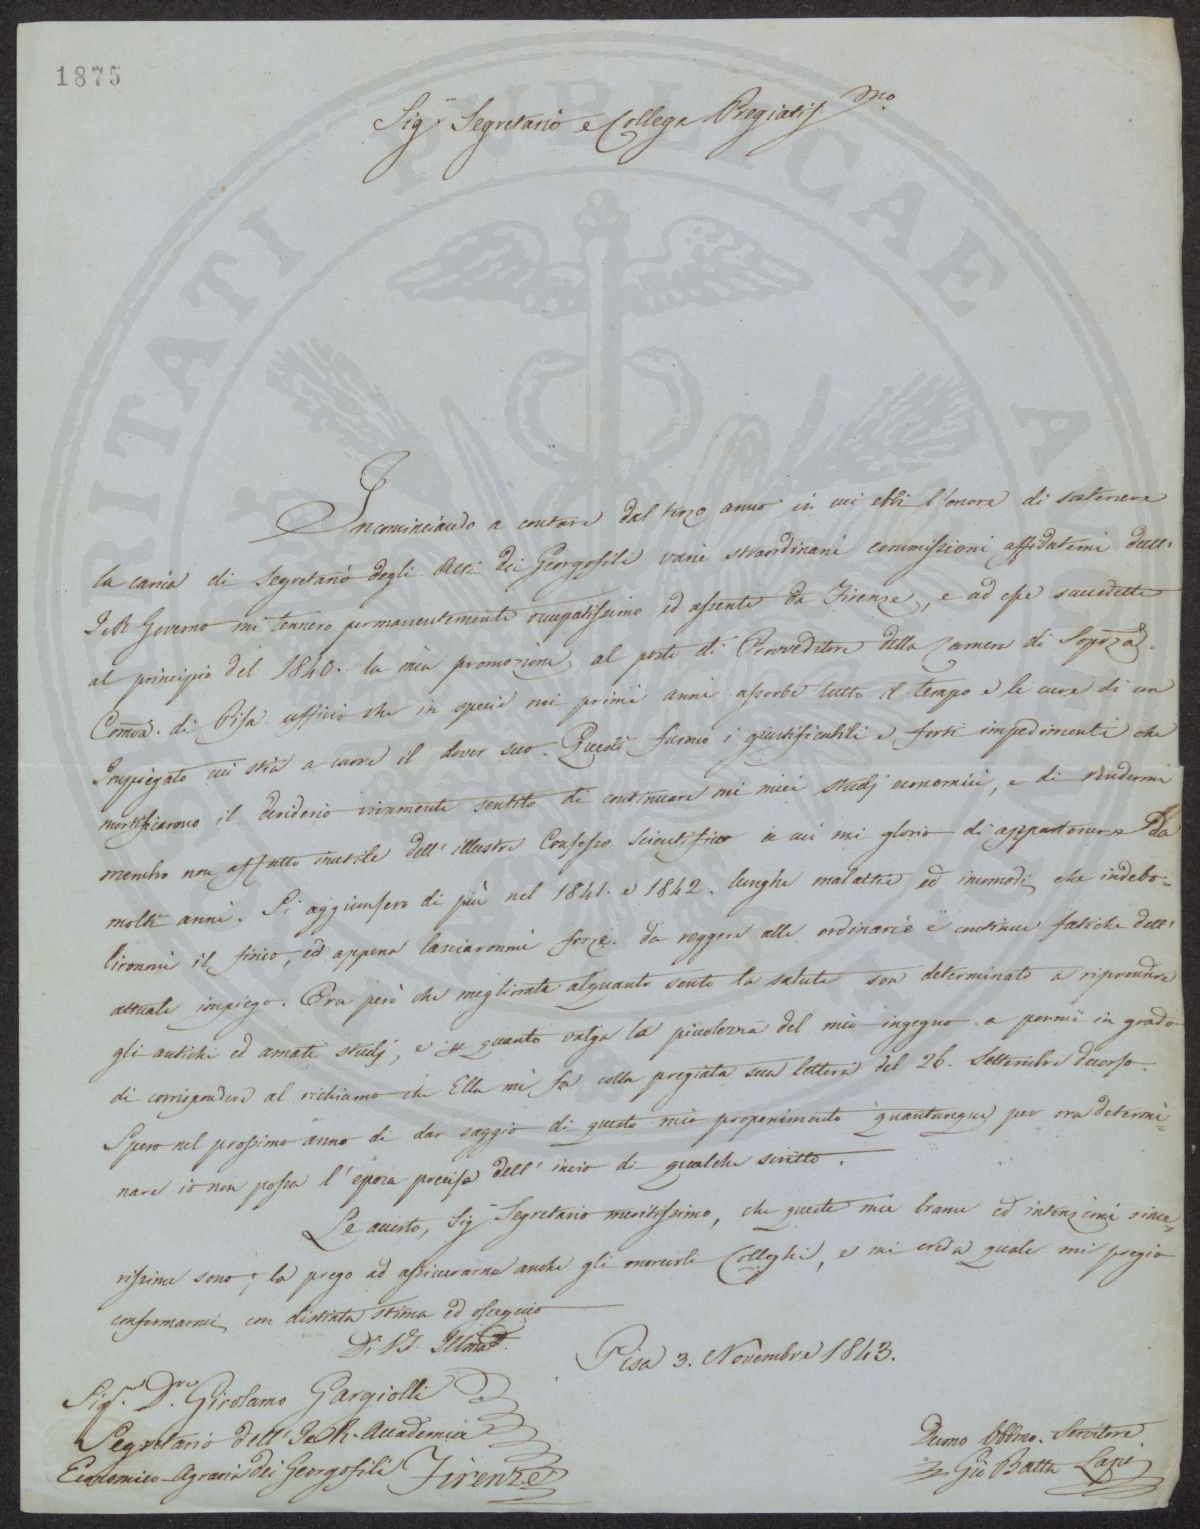 1875
Sig.r Segretario e Collega Pregiatis.mo
Incominciando a contare dal terzo anno in cui ebbi l'onore di sostenere
la carica di Segretario degli Atti dei Georgofili varie straordinarie commissioni affidatemi dall'
I. e R. Governo mi tennero permanentemente occupatissimo ed assente da Firenze, e ad esse succedette
al principio del 1840. la mia promozione al posto di Provveditore della Camera di Sopr.za
Com.va di Pisa ufficio che in specie nei primi anni assorbe tutto il tempo e le cure di un
Impiegato cui stia a cuore il dover suo. Questi furono i giustificabili e forti impedimenti che
mortificarono il desiderio vivamente sentito di continuare nei miei studj economici, e di rendermi
membro non affatto inutile dell'illustre Consesso scientifico a cui mi glorio di appartenere da
molti anni. Si aggiunsero di più nel 1841. e 1842. lunghe malattie ed incomodi che indebo=
lironmi il fisico, ed appena lasciaronmi forze da reggere alle ordinarie e continue fatiche dell'
attuale impiego. Ora però che migliorata alquanto sento la salute son determinato a riprendere
gli antichi ed amati studj, e quanto valga la picolezza del mio ingegno a pormi in grado
di corrispondere al richiamo che Ella mi fa colla pregiata sua lettera del 26. Settembre decorso.
Spero nel prossimo anno di dar saggio di questo mio proponimento quantunque per ora determi=
nare io non possa l'epoca precisa dell'invio di qualche scritto.
Le accerto, Sig.r Segretario meritissimo, che queste mie brame ed intenzioni since=
rissime sono; la prego ad assicurarne anche gli onorevoli Colleghi, e mi creda quale mi pregio
confermarmi con distinta stima ed ossequio
Di V.S. Ill.ma
Pisa 3. Novembre 1843.
Sig.r D.re Girolamo Gargiolli
Segretario dell'I. e R. Accademia
Economico-Agraria dei Georgofili Firenze
Devmo Obbmo. Servitore
Gio Batta Lapi
PUBLICAE